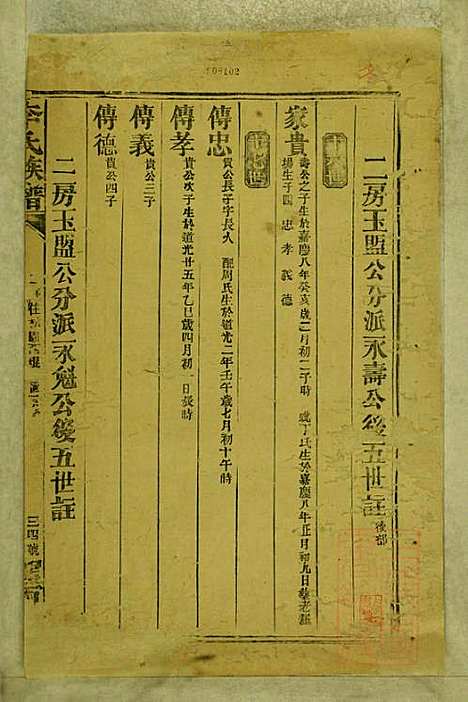 二房玉盟公分派永壽公後五世註 後部
家貴 壽公之子生於嘉慶八年癸亥歲二月初二子時
生於嘉慶八年正月初九日
塲生子四 忠 孝 義 德
傳忠 貴公長子字長久 配周氏生於道光二年壬午歲七月初十午時
傳孝 貴公次子生於道光廿五年乙巳歲四月初一日辰時
傳義 貴公三子
傳德 貴公四子
二房玉盟公分派永魁公後五世註
李氏族譜
三四號